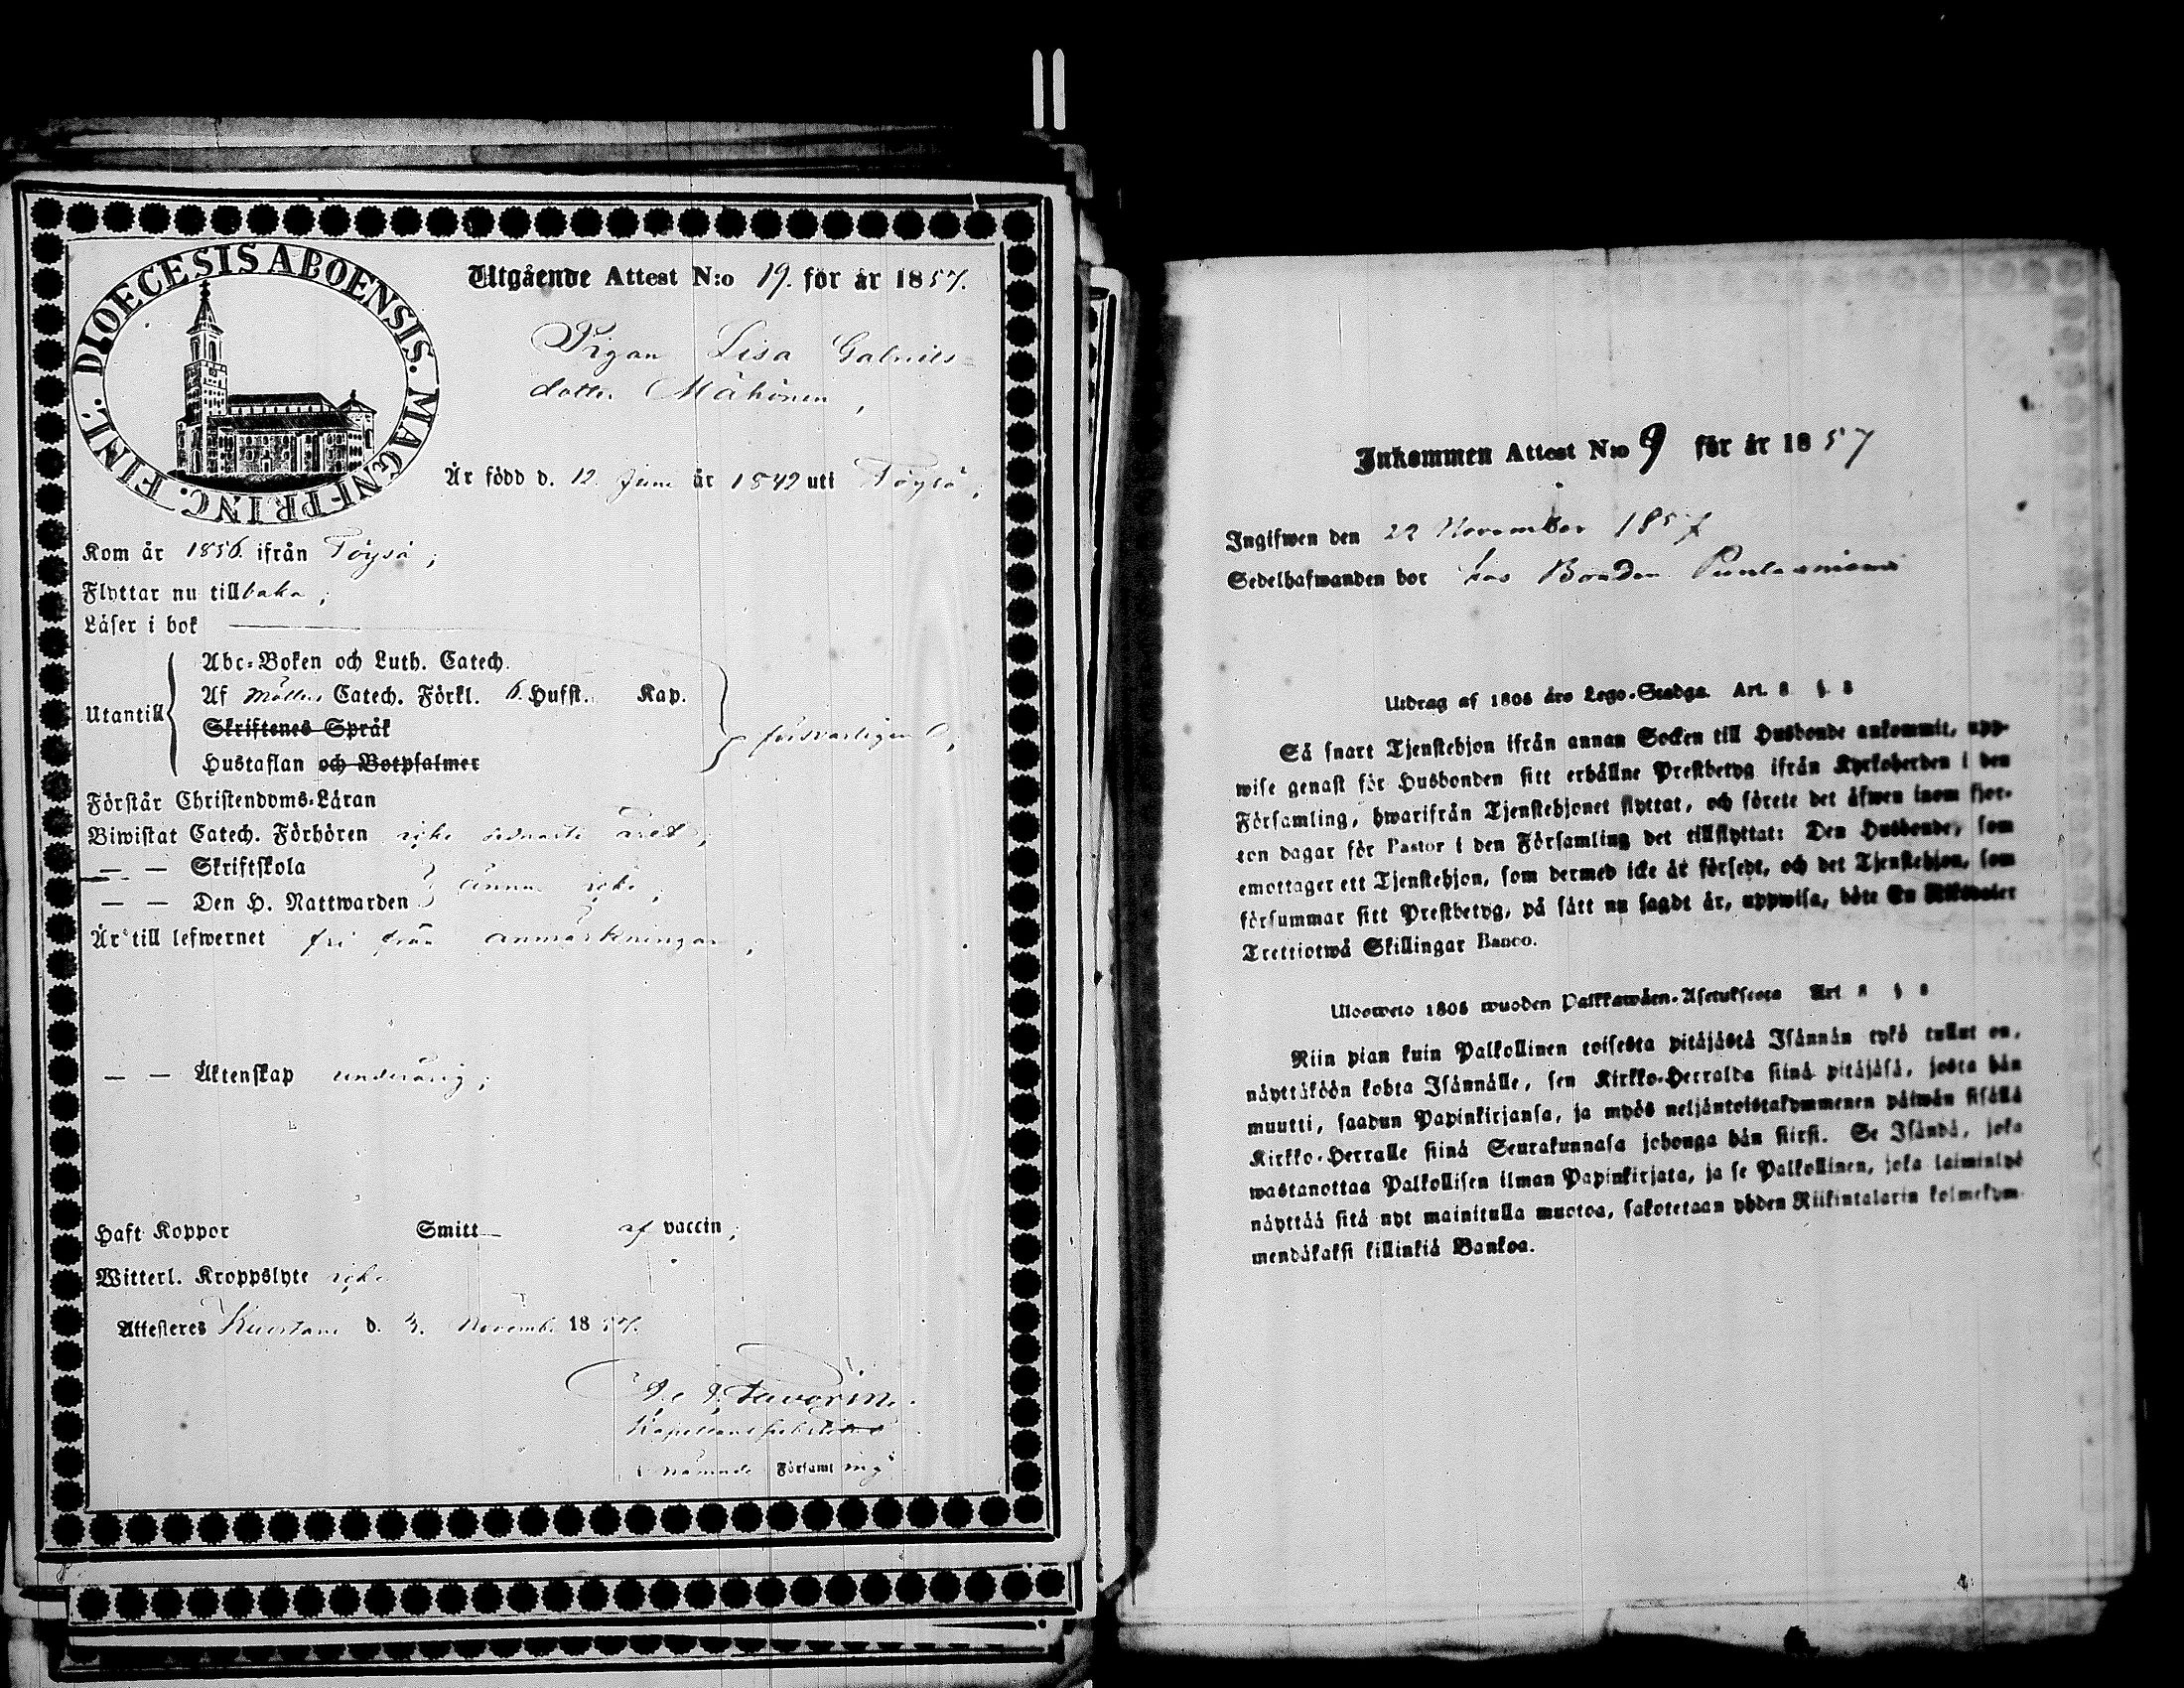 DIOECESIS ABOENSIS. MAGNI PRINC. FINL.
Utgående Attest N:o 19. för år 1857.
Pigan Lisa Gabriels-
dotter Mähönen,
Är född d. 12. Juni år 1842 uti Töysö;
Kom år 1856. ifrån Töysö;
Flyttar nu tillbaka;
Läser i bok
Utantill
Abc-Boken och Luth. Catech.
Af Möllers Catech. Förkl. 6. Hufst. Kap.
Skriftenes Språk
Hustaflan och Botpsalmer
försvarligen;
Förstår Christendoms-Läran
Biwistat Catech. Förhören icke sednaste året;
— — Skriftskola
— — Den H. Nattwarden
ännu icke;
Är till lefwernet fri från anmärkningar;
— — Äktenskap underårig;
Haft Koppor Smitt— af vaccin;
Witterl. Kroppslyte icke
Attesteres Kuortane d. 3. Novemb. 1857.
Kapellansadj
i nämnde Församling
Inkommen Attest N:o 9 för år 1857
Ingifwen den 22 November 1857
Sedelhafwanden bor hos Bonden
Utdrag af 1805 års Lego-Stadga. Art. 8 § 8
Så snart Tjenstehjon ifrån annan Socken till Husbonde ankommit, upp-
wise genast för Husbonden sitt erhållne Prestbetyg ifrån Kyrkoherden i den
Församling, hwarifrån Tjenstehjonet flyttat, och förete det äfwen inom fjor-
ton dagar för Pastor i den Församling det tillflyttat: Den Husbonde, som
emottager ett Tjenstehjon, som dermed icke är försedt, och det Tjenstehjon, som
försummar sitt Prestbetyg, på sätt nu sagdt är, uppwisa, böte En Riksdaler
Trettiotwå Skillingar Banco.
Ulosweto 1805 wuoden Palkkawäen-Asetuksesta Art 8 § 8
Niin pian kuin Palkollinen toisesta pitäjästä Isännän tykö tullut on,
näyttäköön kohta Isännälle, sen Kirkko-Herralda siinä pitäjäsä, josta hän
muutti, saadun Papinkirjansa, ja myös neljäntoistakymmenen päiwän sisällä
Kirkko-Herralle siinä Seurakunnasa johonga hän siirsi. Se Isändä, joka
wastanottaa Palkollisen ilman Papinkirjata, ja se Palkollinen, joka laiminlyö
näyttää sitä nyt mainitulla muotoa, sakotetaan yhden Riikintalarin kolmekym-
mendäkaksi killinkiä Bankoa.